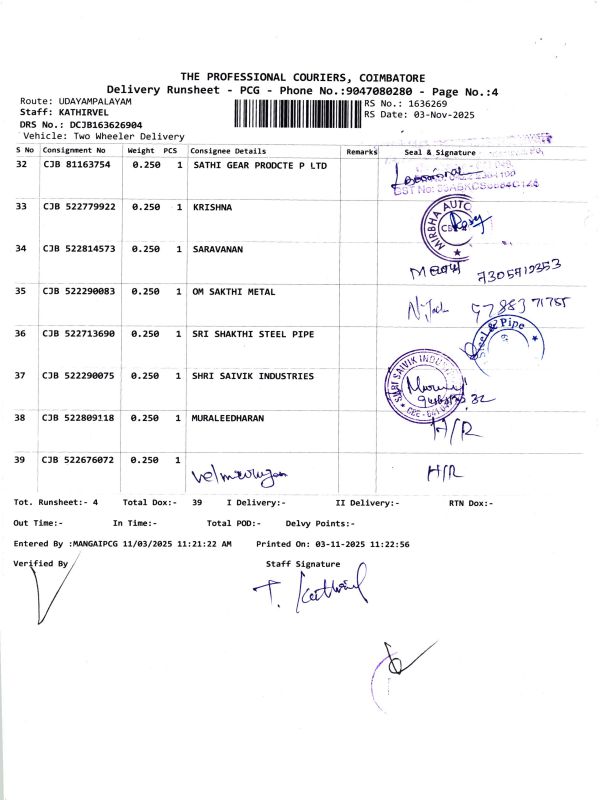 THE PROFESSIONAL COURIERS, COIMBATORE
Delivery Runsheet - PCG - Phone No.:9047080280 - Page No.:4
Route: UDAYAMPALAYAM
RS No.: 1636269
Staff: KATHIRVEL
RS Date: 03-Nov-2025
DRS No.: DCJB163626904
Vehicle: Two Wheeler Delivery
S No Consignment No Weight PCS Consignee Details Remarks Seal & Signature
32 CJB 81163754 0.250 1 SATHI GEAR PRODCTE P LTD
33 CJB 522779922 0.250 1 KRISHNA
MIRBHA AUTO
34 CJB 522814573 0.250 1 SARAVANAN
7305912353
35 CJB 522290083 0.250 1 OM SAKTHI METAL
97883 71755
36 CJB 522713690 0.250 1 SRI SHAKTHI STEEL PIPE
Steel & Pipe
37 CJB 522290075 0.250 1 SHRI SAIVIK INDUSTRIES
SHRI SAIVIK INDUS
38 CJB 522809118 0.250 1 MURALEEDHARAN
H/R
39 CJB 522676072 0.250 1
Velmurugan
H/R
Tot. Runsheet:- 4 Total Dox:- 39 I Delivery:- II Delivery:- RTN Dox:-
Out Time:- In Time:- Total POD:- Delvy Points:-
Entered By :MANGAIPCG 11/03/2025 11:21:22 AM Printed On: 03-11-2025 11:22:56
Verified By Staff Signature
T. Kathirvel